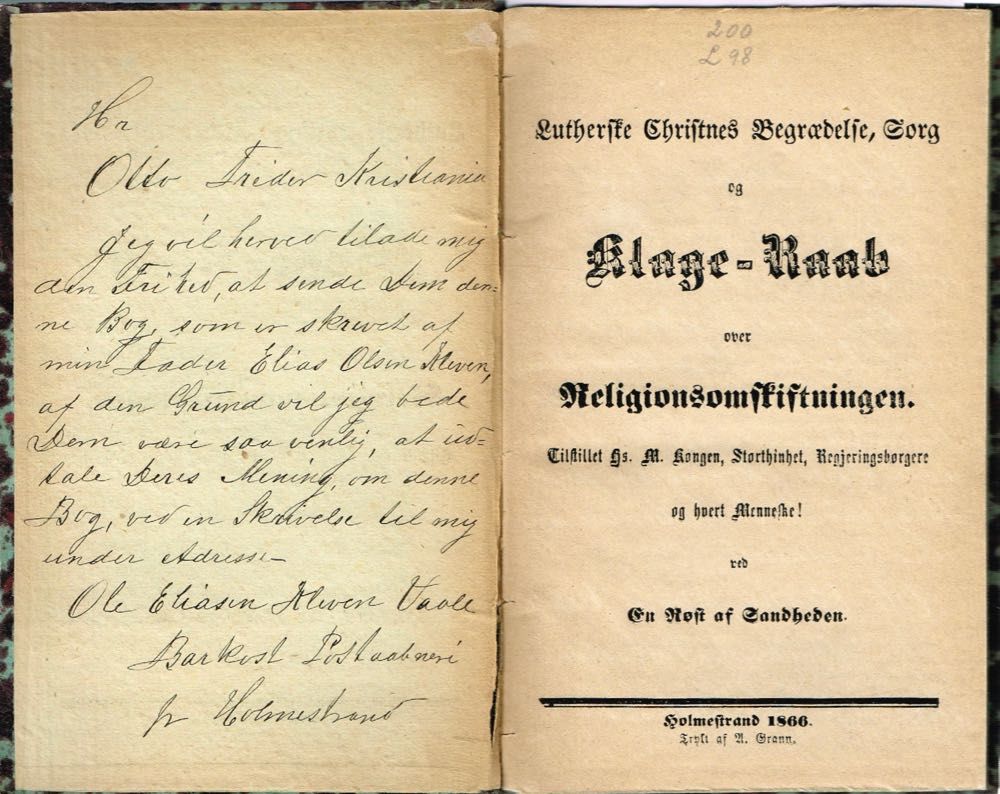 Hr
Otto Treider Kristiania
Jeg vil herved tillade mig
den Frihed, at sende Dem den-
ne Bog, som er skrevet af
min Fader Elias Olsen Kleven,
af den Grund vil jeg bede
Dem være saa venlig, at ud-
tale Deres Mening, om denne
Bog, ved en Skrivelse til mig
under Adresse—
Ole Eliasen Kleven Vaale
Barkost Postaabneri
pr Holmestrand
200
L 98
Lutherske Christnes Begrædelse, Sorg
og
Klage-Raab
over
Religionsomskiftningen.
Tilstillet Hs. M. Kongen, Storthinhet, Regjeringsborgere
og hvert Menneske!
ved
En Røst af Sandheden.
Holmestrand 1866.
Trykt af A. Grann.